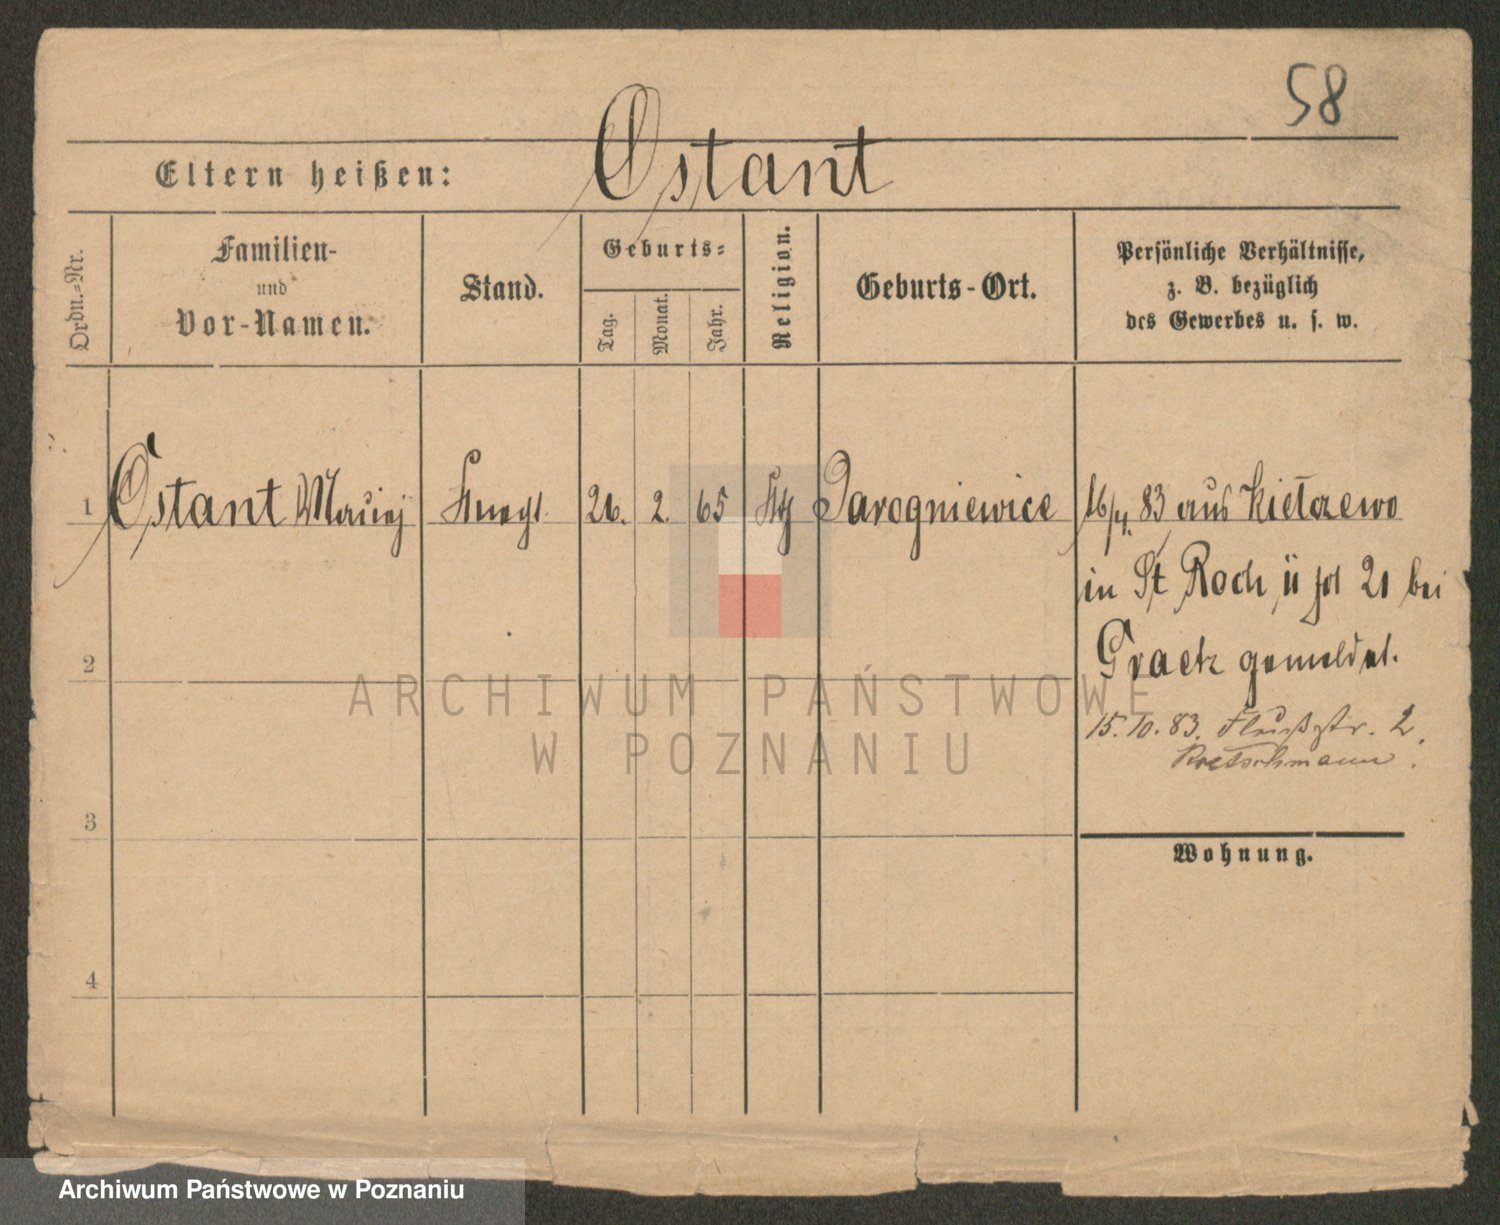 58
Eltern heißen: Ostant
Ordn.-Nr.
Familien-
und
Vor-Namen.
Stand.
Geburts-
Tag.
Monat.
Jahr.
Religion.
Geburts-Ort.
Persönliche Verhältnisse,
z. B. bezüglich
des Gewerbes u. s. w.
1 Ostant Maciej Knecht 26. 2. 65 Kth Jarogniewice 16/4. 83 aus Kiełczewo
in St Roch ü 21 bei
Graetz gemeldet.
2
15. 10. 83. Flußstr. 2.
Kretschmann.
3
Wohnung.
4
ARCHIWUM PAŃSTWOWE
W POZNANIU
Archiwum Państwowe w Poznaniu